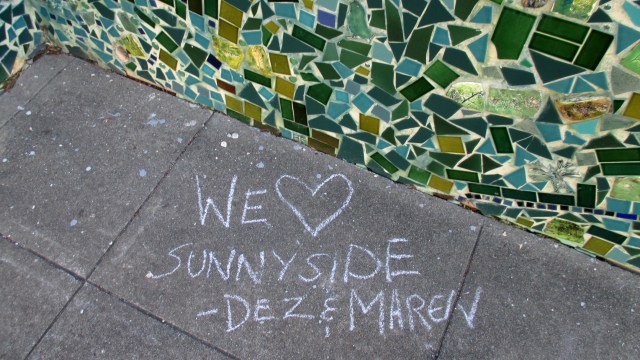 WE ♡
SUNNYSIDE
-DEZ & MAREN